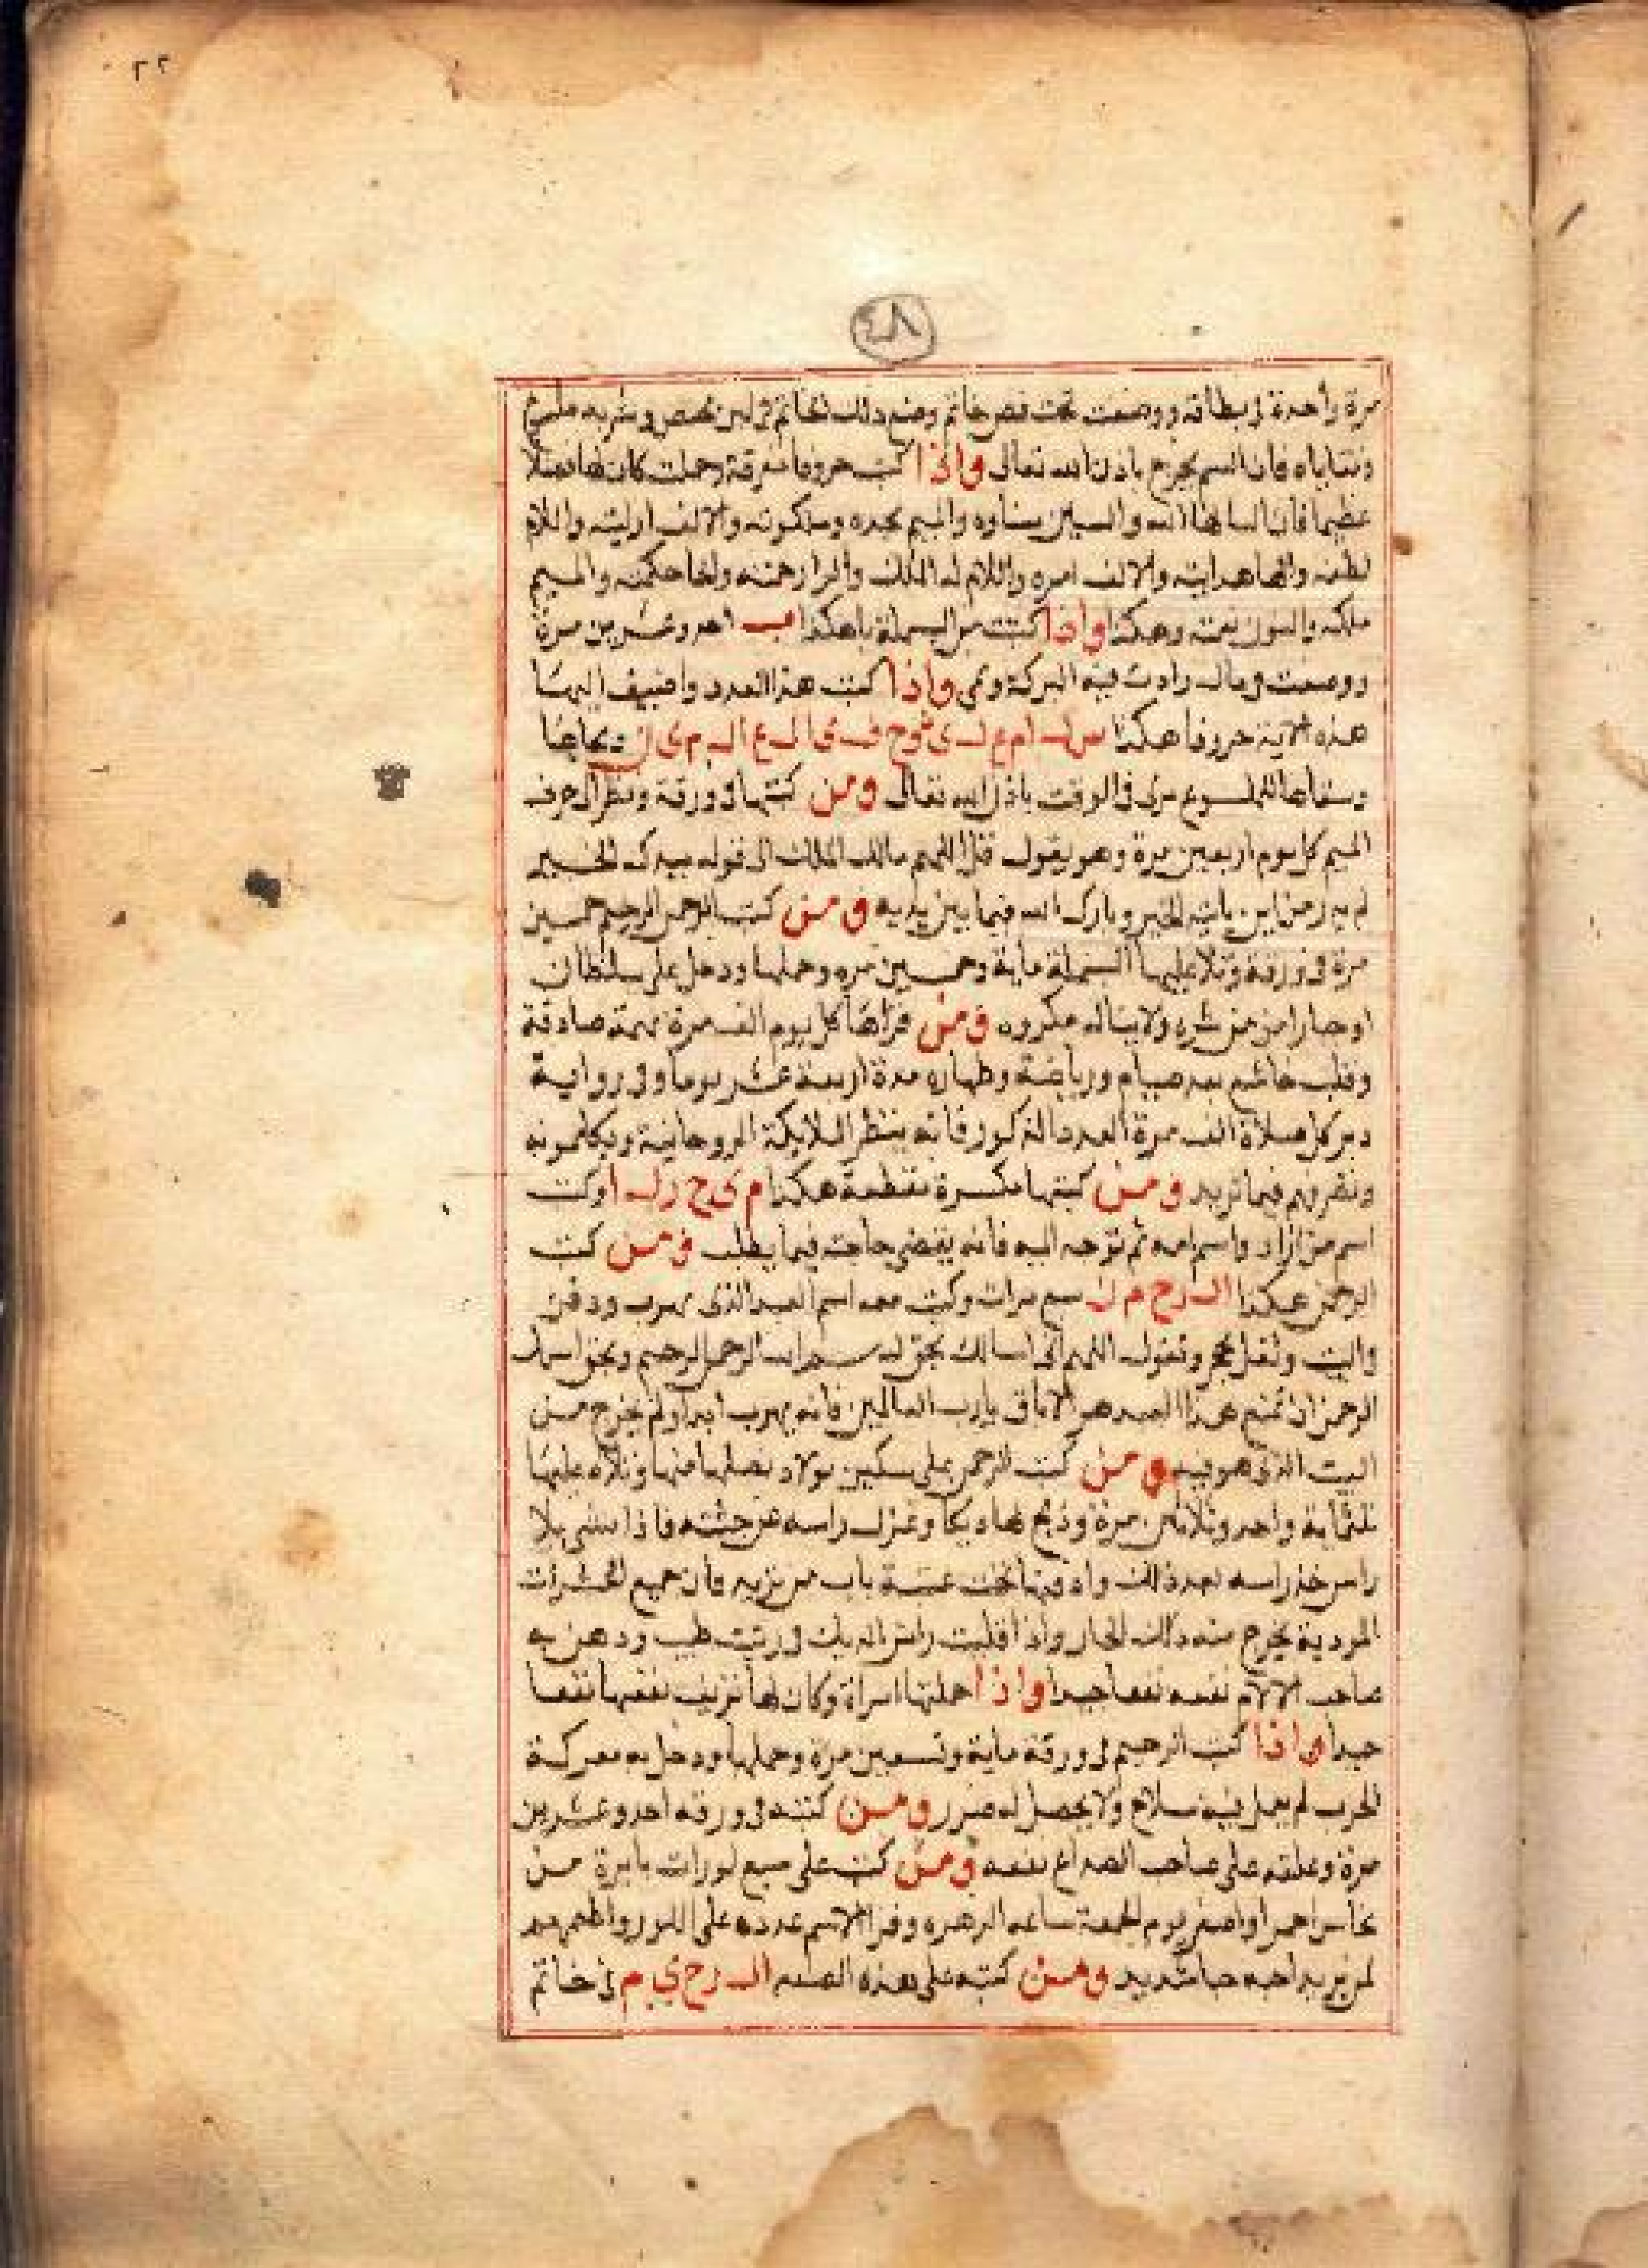 ٤٨
مرة واحدة في بطاقة ووضعت تحت فص خاتم
فان السم يخرج باذن الله تعالى واذا كتبت حروفا مفرقة وحملت كان لها فضلا
عظيما فان البا بهاء الله والسين سناوه والميم مجده وملكوته والالف ازليته واللام
لطفه والها هدايته والالف امره واللام له الملك والرا رحمته والحا حكمته والميم
ملكه والنون نعمته وهكذا واذا كتبت من البسملة با هكذا ب احد وعشرين مرة
ووضعت في مال زادت فيه البركة ونمى واذا كتبت هذا العدد واضيف اليها
هذه الاية حروفا هكذا س ل ا م ع ل ى ن و ح ف ى ا ل ع ا ل م ى ن ومحاها
وسقاها للملسوع برى في الوقت باذن الله تعالى ومن كتبها في ورقة ونظر الى حرف
الميم كل يوم اربعين مرة وهو يقول قل اللهم مالك الملك الى قوله بيدك الخير
لم يدر من اين ياتيه الخير وبارك الله فيما بين يديه ومن كتب الرحمن الرحيم خمسين
مرة في ورقة وتلا عليها البسملة ماية وخمسين مرة وحملها ودخل على سلطان
او جبار امن من شره ولا يناله مكروه ومن قراها كل يوم الف مرة بهمة صادقة
وقلب خاشع بعد صيام ورياضة وطهارة مدة اربعة عشر يوما وفي رواية
دبر كل صلاة الف مرة العدد المذكور فانه ينظر الملايكة الروحانية ويكلمونه
وتصرفهم فيما تريد ومن كتبها مكسرة مقطعة هكذا م ى ح ر ل ا وكتب
اسم من اراد واسم امه ثم توجه اليه فانه يقضي حاجته فيما يطلب ومن كتب
الرحمن هكذا ا ل ر ح م ن سبع مرات وكتب معه اسم العبد الذي يهرب ودفن
في البيت وثقل بحجر وتقول اللهم اني اسالك بحق بسم الله الرحمن الرحيم وبحق اسمك
الرحمن ان تمنع هذا العبد من الاباق يارب العالمين فانه يهرب ابدا ولم يخرج من
البيت الذي هو فيه ومن كتب الرحمن على سكين بولاد نصلها منها وتلاه عليها
ثلثماية واحد وثلاثين مرة وذبح بها ديكا وعزل راسه عن جثته فاذا مشى بلا
راس خذ راسه بعد ذلك وادفنها تحت عتبة باب من تريد فان جميع الحشرات
المردية يخرج منه ذلك الحال واذا قليت راس الديك في زيت طيب ودهن به
صاحب الالام نفعه نفعا جيدا واذا حملتها امراة وكان لها نزيف نفعها نفعا
جيدا واذا كتب الرحيم في ورقة ماية وتسعين مرة وحملها ودخل به معركة
الحرب لم يعمل فيه سلاح ولا يحصل له ضرر ومن كتبه في ورقة احد وعشرين
مرة وعلقه على صاحب الصداع نفعه ومن كتب على سبع لوزات بابرة من
نحاس احمر او اصفر يوم الجمعة ساعة الزهرة وقرا الاسم عدده على اللوز واطعمهم
لمن يريد احبه حبا شديد ومن كتبه على هذه الصفه ا ل ر ح ي م في خاتم